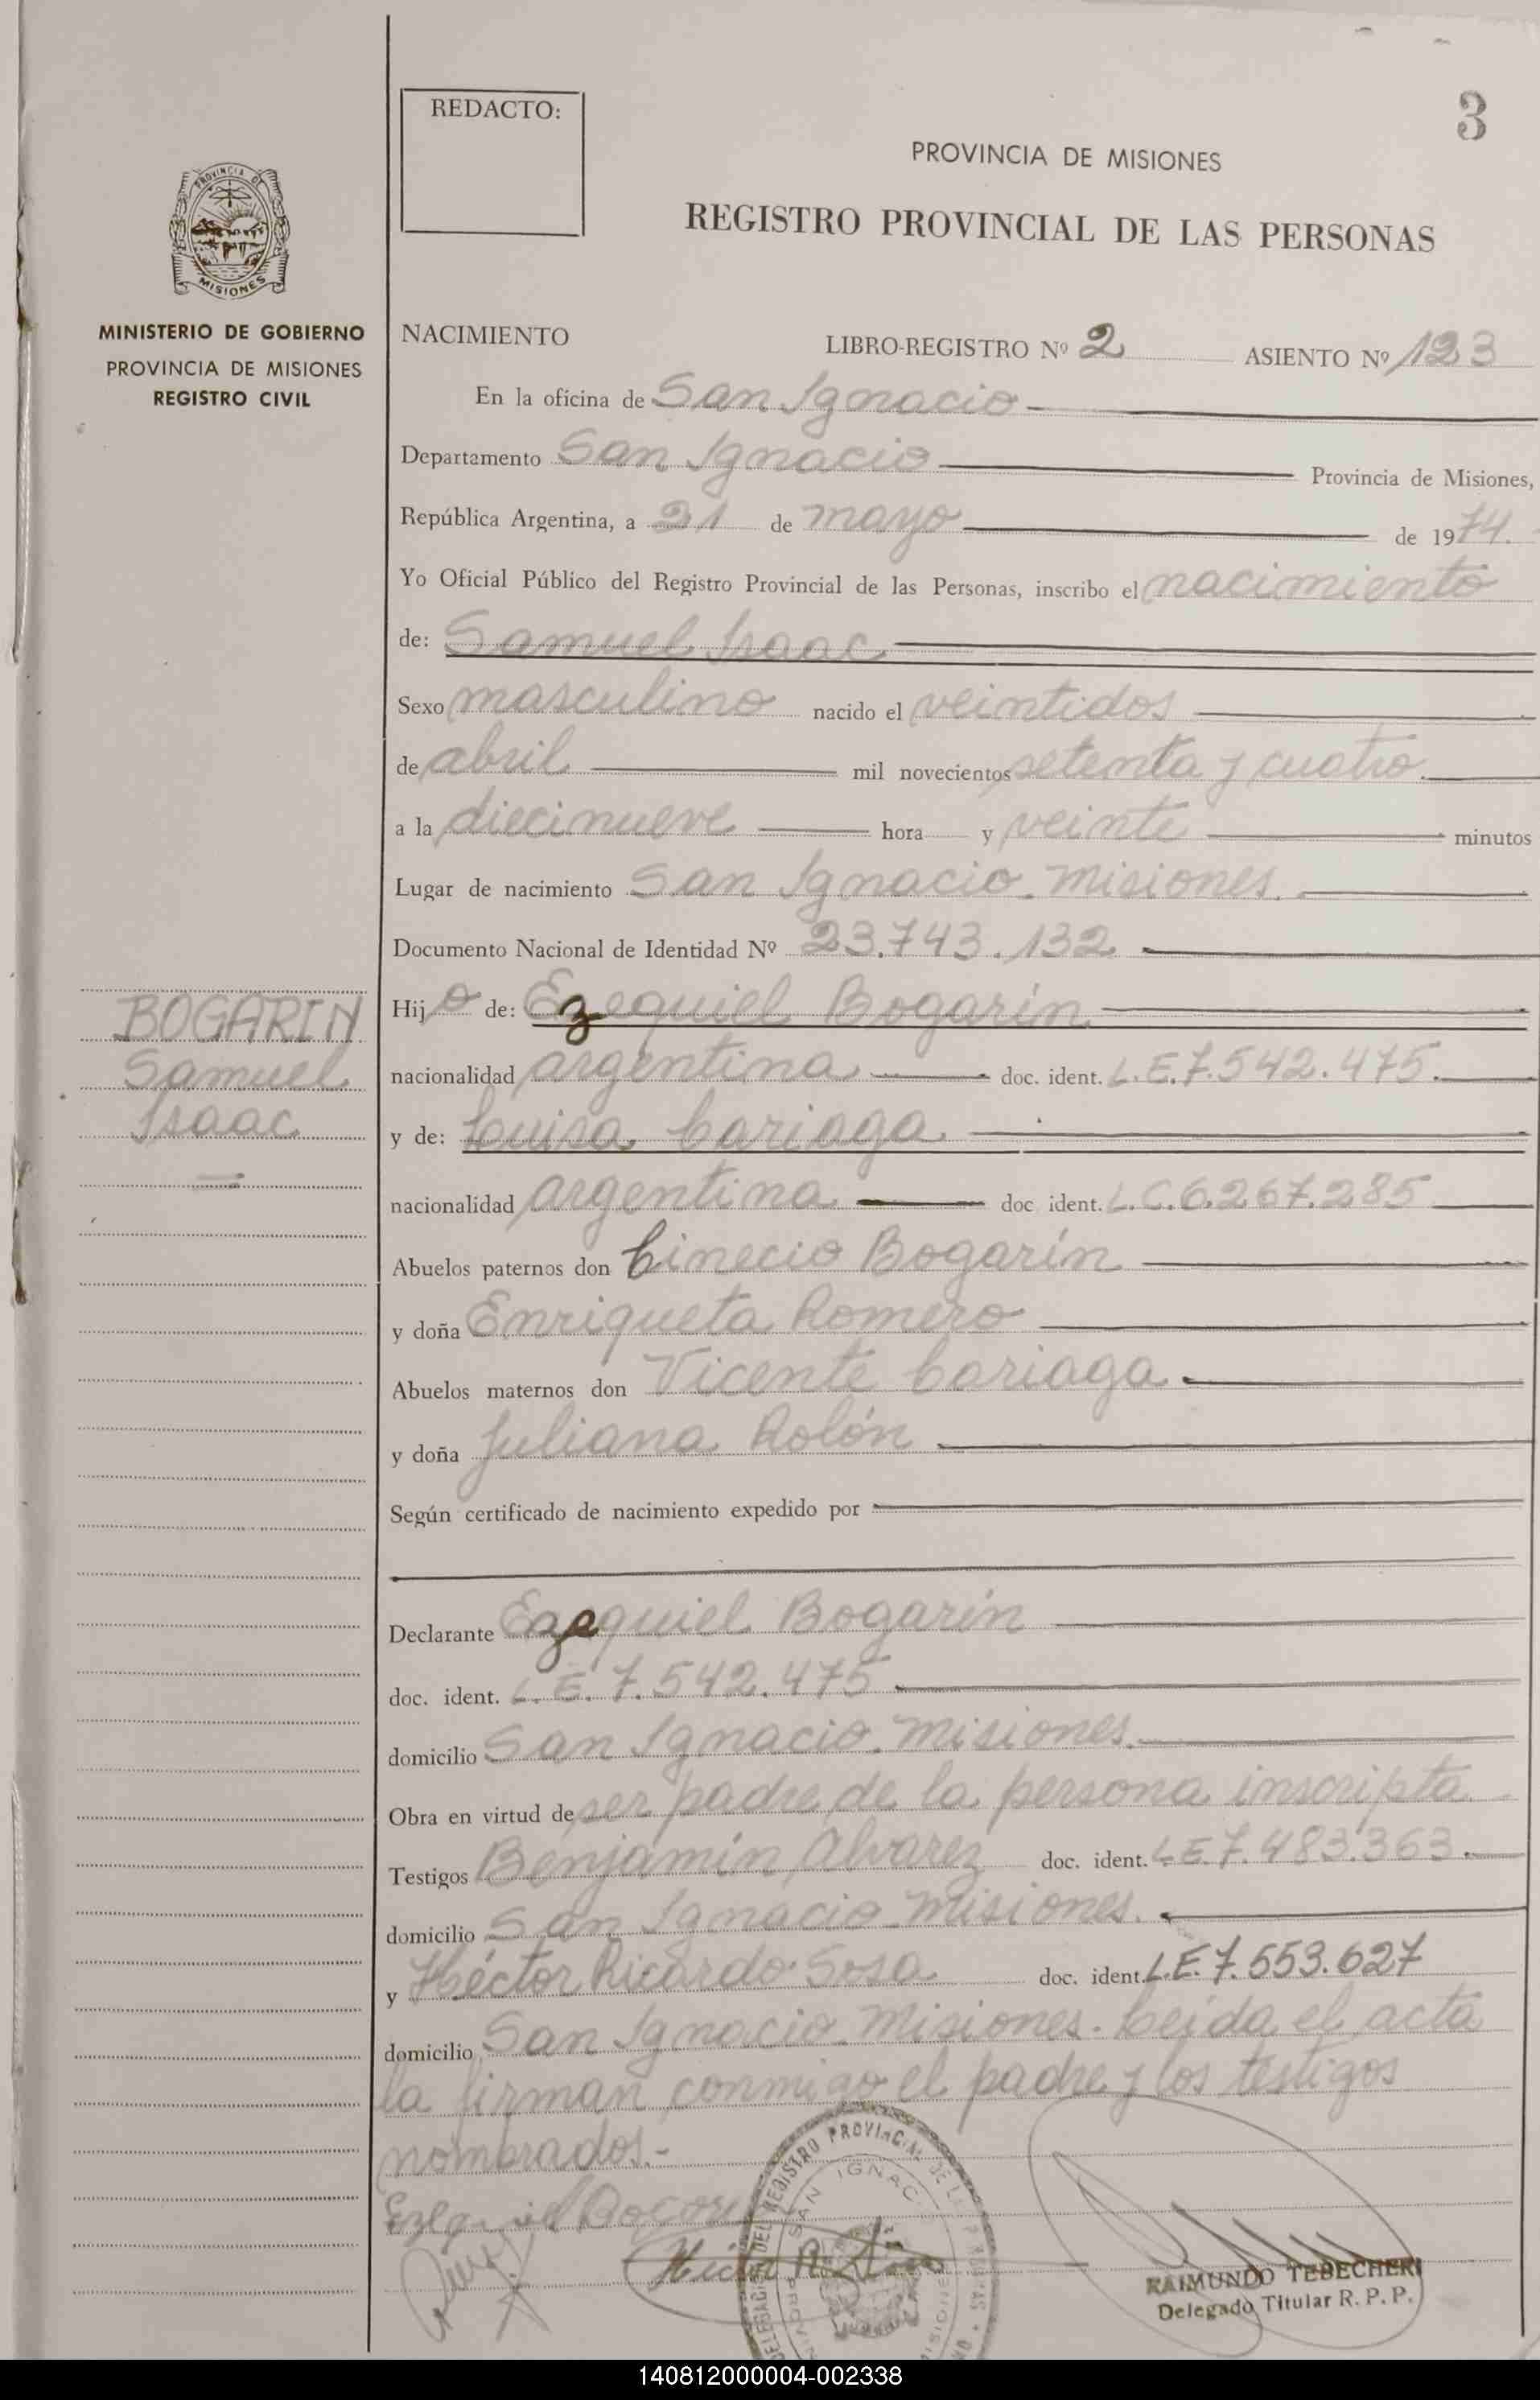 REDACTO:
3
PROVINCIA DE MISIONES
REGISTRO PROVINCIAL DE LAS PERSONAS
PROVINCIA DE
MISIONES
MINISTERIO DE GOBIERNO
PROVINCIA DE MISIONES
REGISTRO CIVIL
NACIMIENTO LIBRO-REGISTRO Nº 2 ASIENTO Nº 123
En la oficina de San Ignacio
Departamento San Ignacio Provincia de Misiones,
República Argentina, a 21 de mayo de 1974.
Yo Oficial Público del Registro Provincial de las Personas, inscribo el nacimiento
de: Samuel Isaac
Sexo masculino nacido el veintidos
de abril mil novecientos setenta y cuatro
a la diecinueve hora y veinte minutos
Lugar de nacimiento San Ignacio. Misiones.
Documento Nacional de Identidad Nº 23.743.132
BOGARIN
Samuel
Isaac
Hijo de: Ezequiel Bogarín
nacionalidad argentina doc. ident. L.E.7.542.475.
y de: Luisa Cariaga
nacionalidad argentina doc ident. L.C.6.267.285
Abuelos paternos don Cinecio Bogarín
y doña Enriqueta Romero
Abuelos maternos don Vicente Cariaga
y doña Juliana Rolón
Según certificado de nacimiento expedido por
Declarante Ezequiel Bogarín
doc. ident. L.E. 7.542.475
domicilio San Ignacio. Misiones.
Obra en virtud de ser padre de la persona inscripta.
Testigos Benjamín Alvarez doc. ident. L.E.7.483.363.
domicilio San Ignacio. Misiones.
y Héctor Ricardo Sosa doc. ident. L.E.7.553.627
domicilio San Ignacio. Misiones. Leída el acta
la firman conmigo el padre y los testigos
nombrados.-
Ezequiel Bogarin
DELEGACION DEL REGISTRO PROVINCIAL DE LAS PERSONAS
SAN IGNACIO
RAIMUNDO TEBECHERI
Delegado Titular R. P. P.
140812000004-002338